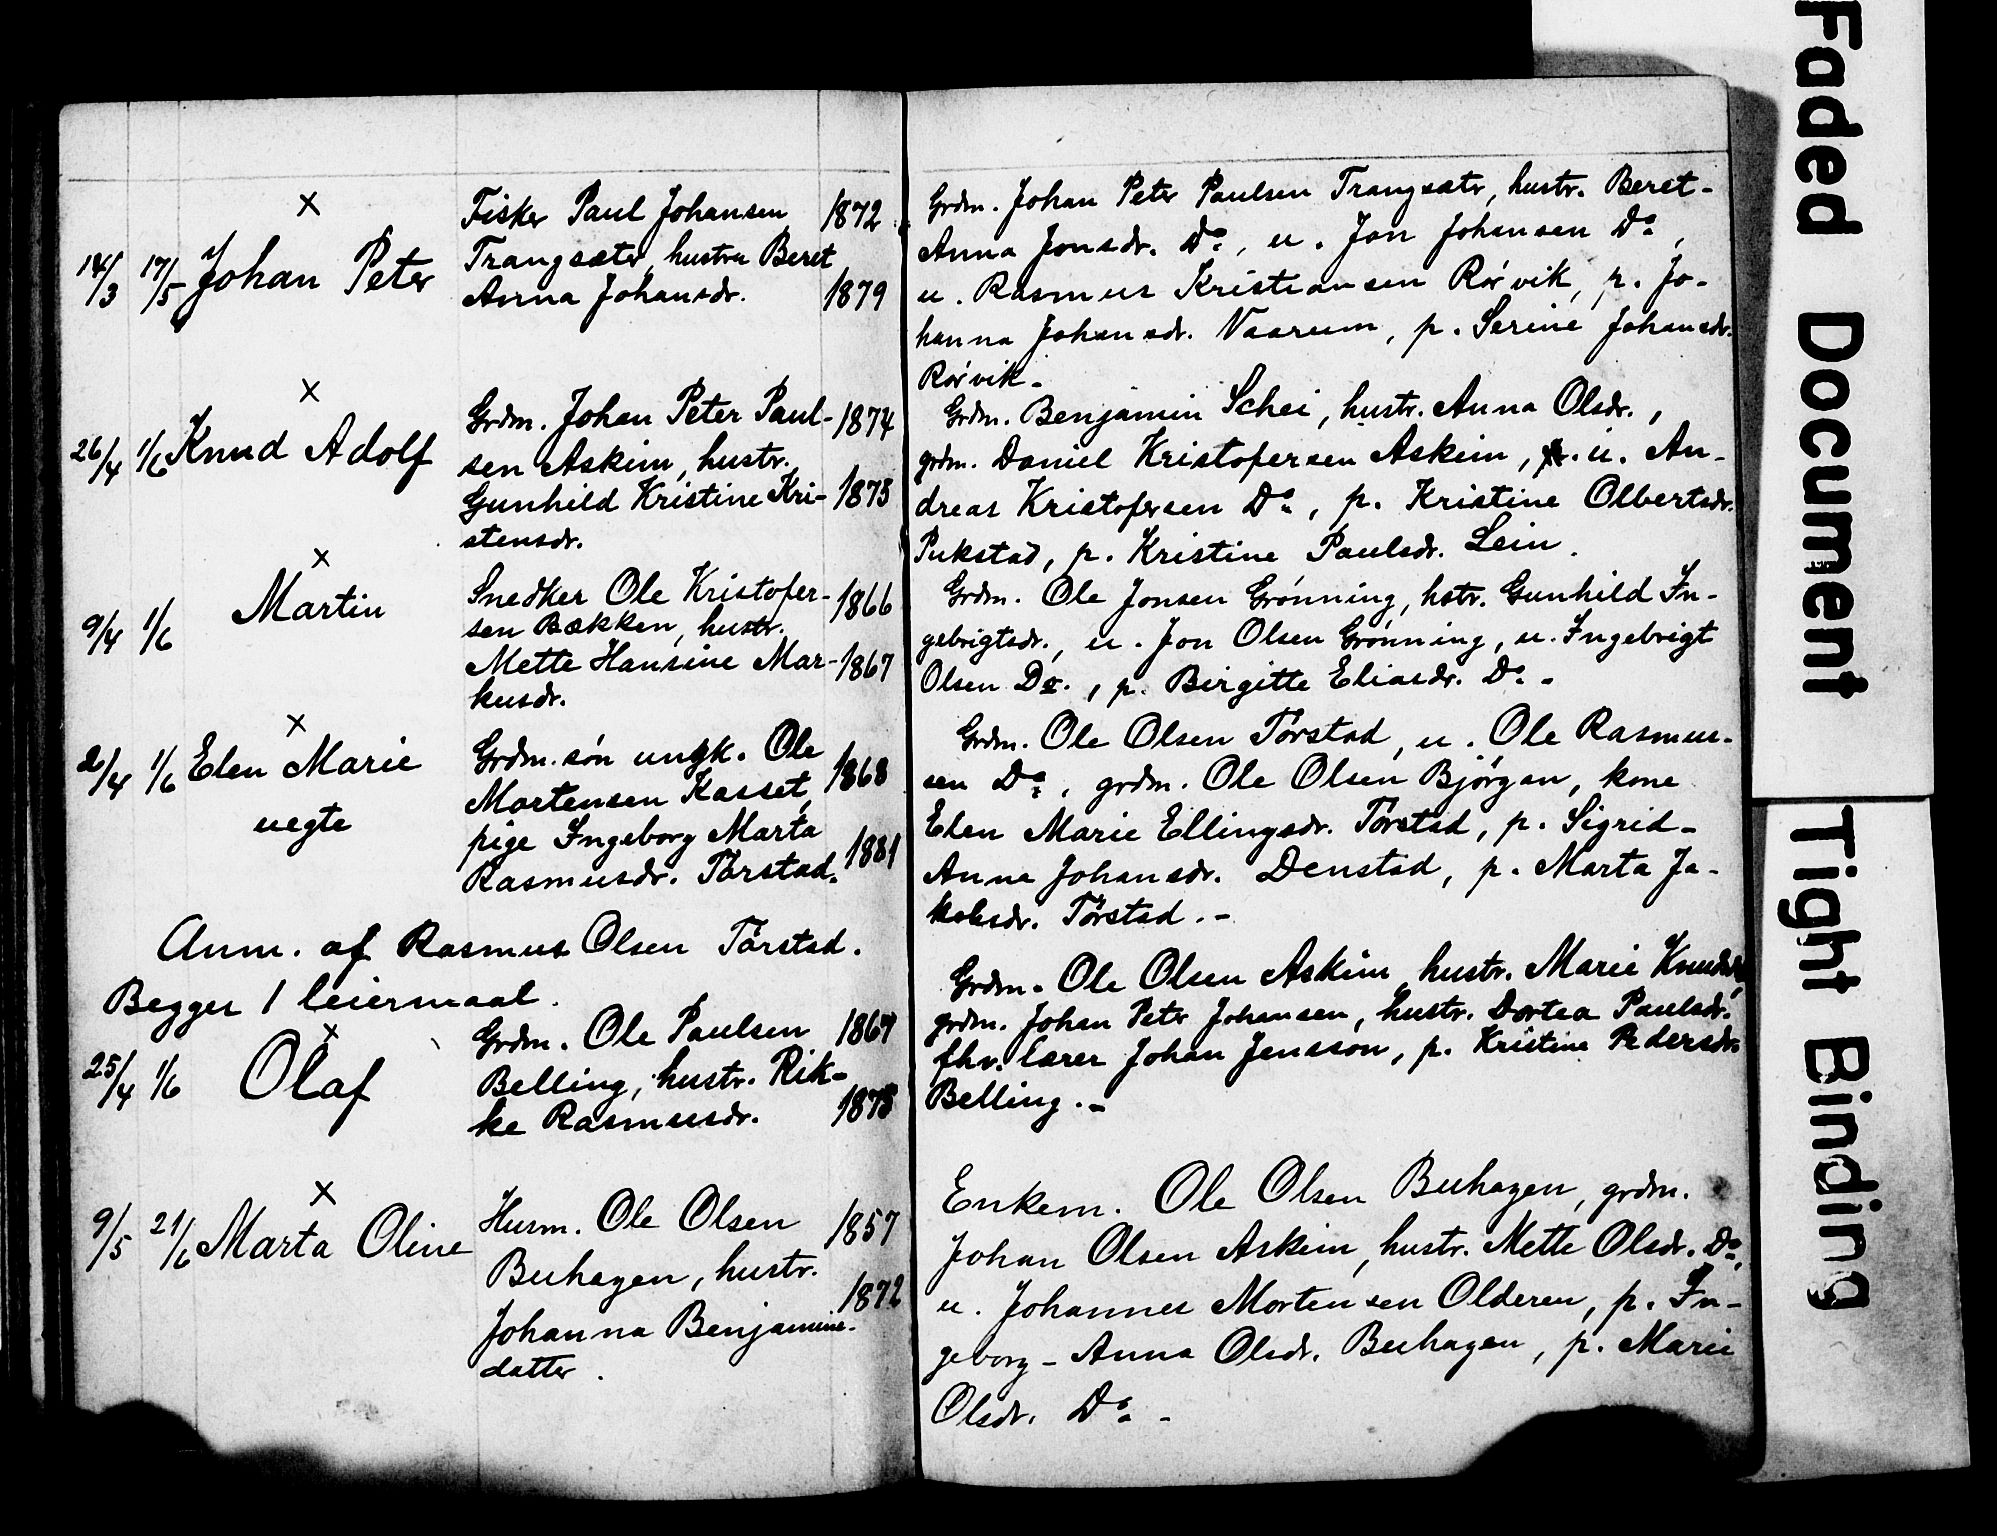 ×
14/3 17/5 Johan Peter
Fisker Paul Johansen 1872
Trangsæter, hustru Beret
Anna Johansdr. 1879
Grdm. Johan Peter Paulsen Trangsætr, hustr. Beret-
Anna Jonsdr. Do., u. Jon Johansen Do,
u. Rasmus Kristiansen Rørvik, p. Jo-
hanna Johansdr. Vaarum, p. Serine Johansdr.
Rørvik.
×
26/4 1/6 Knud Adolf
Grdm. Johan Peter Paul- 1874
sen Askim, hustr.
Gunhild Kristine Kri- 1875
stensdr.
Grdm. Benjamin Schei, hustr. Anna Olsdr.,
grdm. Daniel Kristofersen Askim, u. An-
dreas Kristofersen Do., p. Kristine Olbertsdr.
Pukstad, p. Kristine Paulsdr. Lein.
×
9/4 1/6 Martin
Snedker Ole Kristofer- 1866
sen Bækken, hustr.
Mette Hansine Mar- 1867
kusdr.
Grdm. Ole Jonsen Grønning, hstr. Gunhild In-
gebrigtsdr., u. Jon Olsen Grønning, u. Ingebrigt
Olsen Do., p. Birgitte Eliasdr. Do.-
×
2/4 1/6 Elen Marie
uegte
Grdm. søn ungk. Ole
Mortensen Kasset, 1868
pige Ingeborg Marta
Rasmusdr. Tørstad. 1881
Grdm. Ole Olsen Tørstad, u. Ole Rasmus-
sen Do., grdm. Ole Olsen Bjørgan, kone
Elen Marie Ellingsdr. Tørstad, p. Sigrid-
Anna Johansdr. Denstad, p. Marta Ja-
kobsdr. Tørstad.-
Anm. af Rasmus Olsen Tørstad.
Begges 1 leiermaal.
×
25/4 1/6 Olaf
Grdm. Ole Paulsen 1867
Belling, hustr. Rik-
ke Rasmusdr. 1878
Grdm. Ole Olsen Askim, hustr. Marie Knudsdr,
grdm. Johan Peter Johansen, hustr. Dortea Paulsdr.
fhv. lærer Johan Jensson, p. Kristine Pedersdr.
Belling.-
×
9/5 21/6 Marta Oline
Husm. Ole Olsen 1857
Buhagen, hustr.
Johanna Benjamins- 1872
datter.
Enkem. Ole Olsen Buhagen, grdm.
Johan Olsen Askim, hustr. Mette Olsdr. Do,
u. Johannes Mortensen Olderen, p. In-
geborg-Anna Olsdr. Buhagen, p. Marie
Olsdr. Do. -
Faded Document
Tight Binding